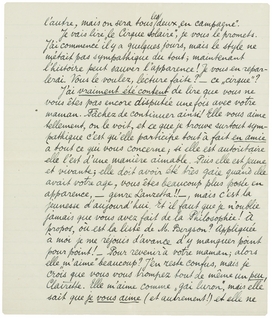 l'autre, mais on sera tous les deux en campagne".
"Je vais lire le Cirque Solaire", je vous le promets.
J'ai commencé il y a quelques jours, mais le style ne
m'était pas sympathique du tout; maintenant
l'histoire peut sauver l'apparence! Je vous en repar-
lerai. Vous le voulez, lecture faite? — ce "cirque"?
J'ai vraiment été content de lire que vous ne
vous êtes pas encore disputée une fois avec votre
maman. Tâchez de continuer ainsi! Elle vous aime
tellement, on le voit, et ce que je trouve surtout sym-
pathique c'est qu'elle participe tout à fait en amie
à tout ce que vous concerne; si elle est autoritaire
elle l'est d'une manière aimable. Puis elle est jeune
et vivante; elle doit avoir été très gaie quand elle
avait votre age, vous êtes beaucoup plus posée en
apparence, — genre, — mais c'est la
jeunesse d'aujourd'hui. Et il faut que je n'oublie
jamais que vous avez fait de la Philosophie! A
propos, où est la liste de M. Bergson? Appliquée
à moi je me réjouis d'avance d'y manquer point
pour point! — Pour revenir à votre maman; alors
elle m'aime beaucoup? J'en reste confus, mais je
crois que vous vous trompez tout de même un peu,
Clairette. Elle m'aime comme "gai luron", mais elle
sait que je vous aime (et autrement!) et elle ne